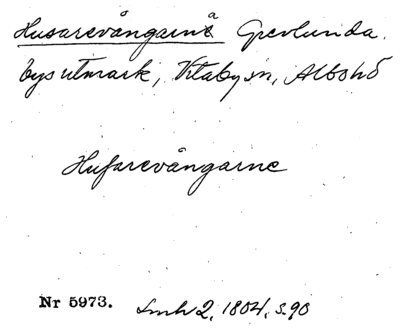 Husarevångarna Grevlunda
bys utmark, Vitaby sn, Albo hd
Husarevångarne
Nr 5973. Lmh 2, 1804, s. 90